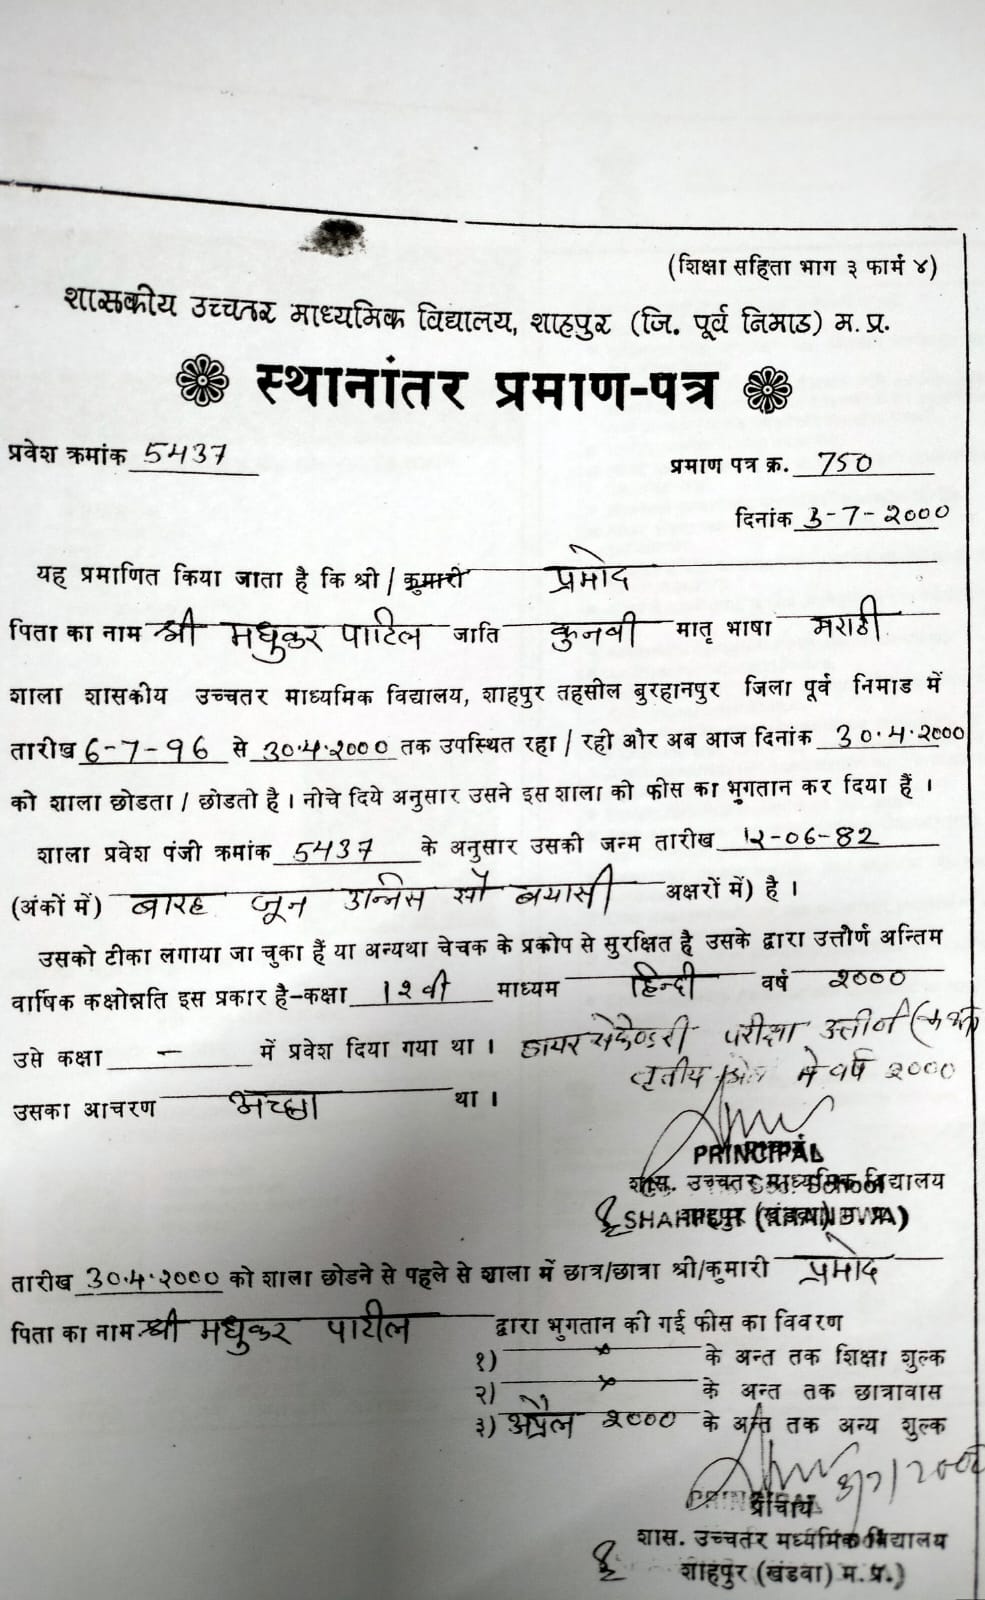 (शिक्षा सहिता भाग ३ फार्म ४)
शासकीय उच्चतर माध्यमिक विद्यालय, शाहपुर (जि. पूर्व निमाड) म. प्र.
स्थानांतर प्रमाण-पत्र
प्रवेश क्रमांक 5437
प्रमाण पत्र क्र. 750
दिनांक 3-7-2000
यह प्रमाणित किया जाता है कि श्री / कुमारी प्रमोद
पिता का नाम श्री मधुकर पाटिल जाति कुनबी मातृ भाषा मराठी
शाला शासकीय उच्चतर माध्यमिक विद्यालय, शाहपुर तहसील बुरहानपुर जिला पूर्व निमाड में
तारीख 6-7-96 से 30.4.2000 तक उपस्थित रहा / रही और अब आज दिनांक 30.4.2000
को शाला छोडता / छोडती है । नीचे दिये अनुसार उसने इस शाला को फीस का भुगतान कर दिया हैं ।
शाला प्रवेश पंजी क्रमांक 5437 के अनुसार उसकी जन्म तारीख 12-06-82
(अंकों में) बारह जून उन्निस सौ बयासी अक्षरों में) है ।
उसको टीका लगाया जा चुका हैं या अन्यथा चेचक के प्रकोप से सुरक्षित है उसके द्वारा उत्तीर्ण अन्तिम
वार्षिक कक्षोन्नति इस प्रकार है-कक्षा 12वी माध्यम हिन्दी वर्ष 2000
उसे कक्षा — में प्रवेश दिया गया था । हायर सेकेण्डरी परीक्षा उत्तीर्ण
तृतीय में वर्ष 2000
उसका आचरण अच्छा था ।
PRINCIPAL
शास. उच्चतर माध्यमिक विद्यालय
शाहपुर (खंडवा) म. प्र.)
तारीख 30.4.2000 को शाला छोडने से पहले से शाला में छात्र/छात्रा श्री/कुमारी प्रमोद
पिता का नाम श्री मधुकर पाटील द्वारा भुगतान की गई फीस का विवरण
१) x के अन्त तक शिक्षा शुल्क
२) x के अन्त तक छात्रावास
३) अप्रैल 2000 के अन्त तक अन्य शुल्क
3/7/2000
प्राचार्य
शास. उच्चतर मध्यमिक विद्यालय
शाहपुर (खंडवा) म. प्र.)